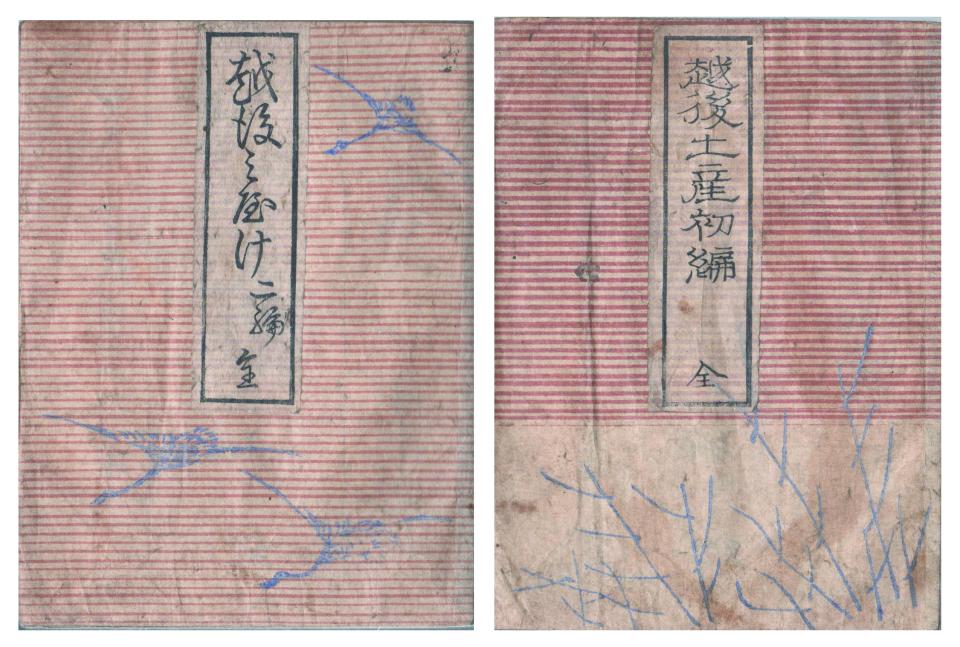 越後土産初編
全
越後みやけ二編
全